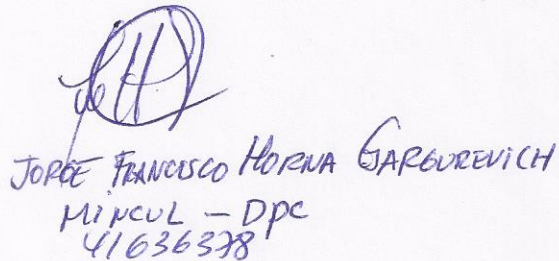 JORGE FRANCISCO HORNA GARGUREVICH
MINCUL - DPC
41636378